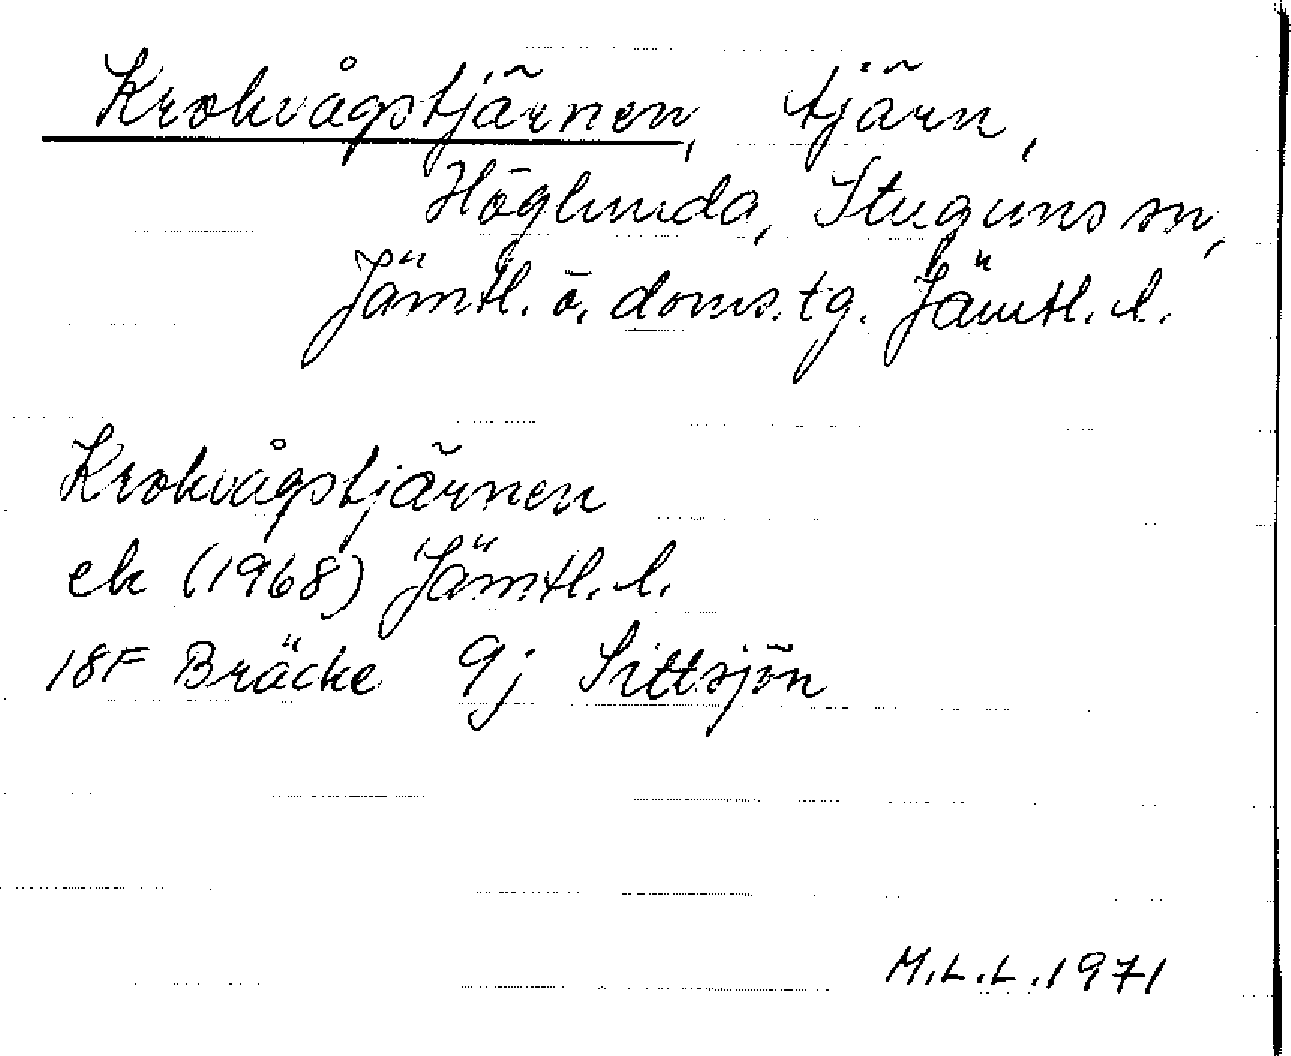 Krokvågstjärnen, tjärn,
Höglunda, Stuguns sn,
Jämtl. ö. doms. tg. Jämtl. l.
Krokvågstjärnen
ek (1968) Jämtl. l.
18F Bräcke 9j Sittsjön
M.L.L. 1971